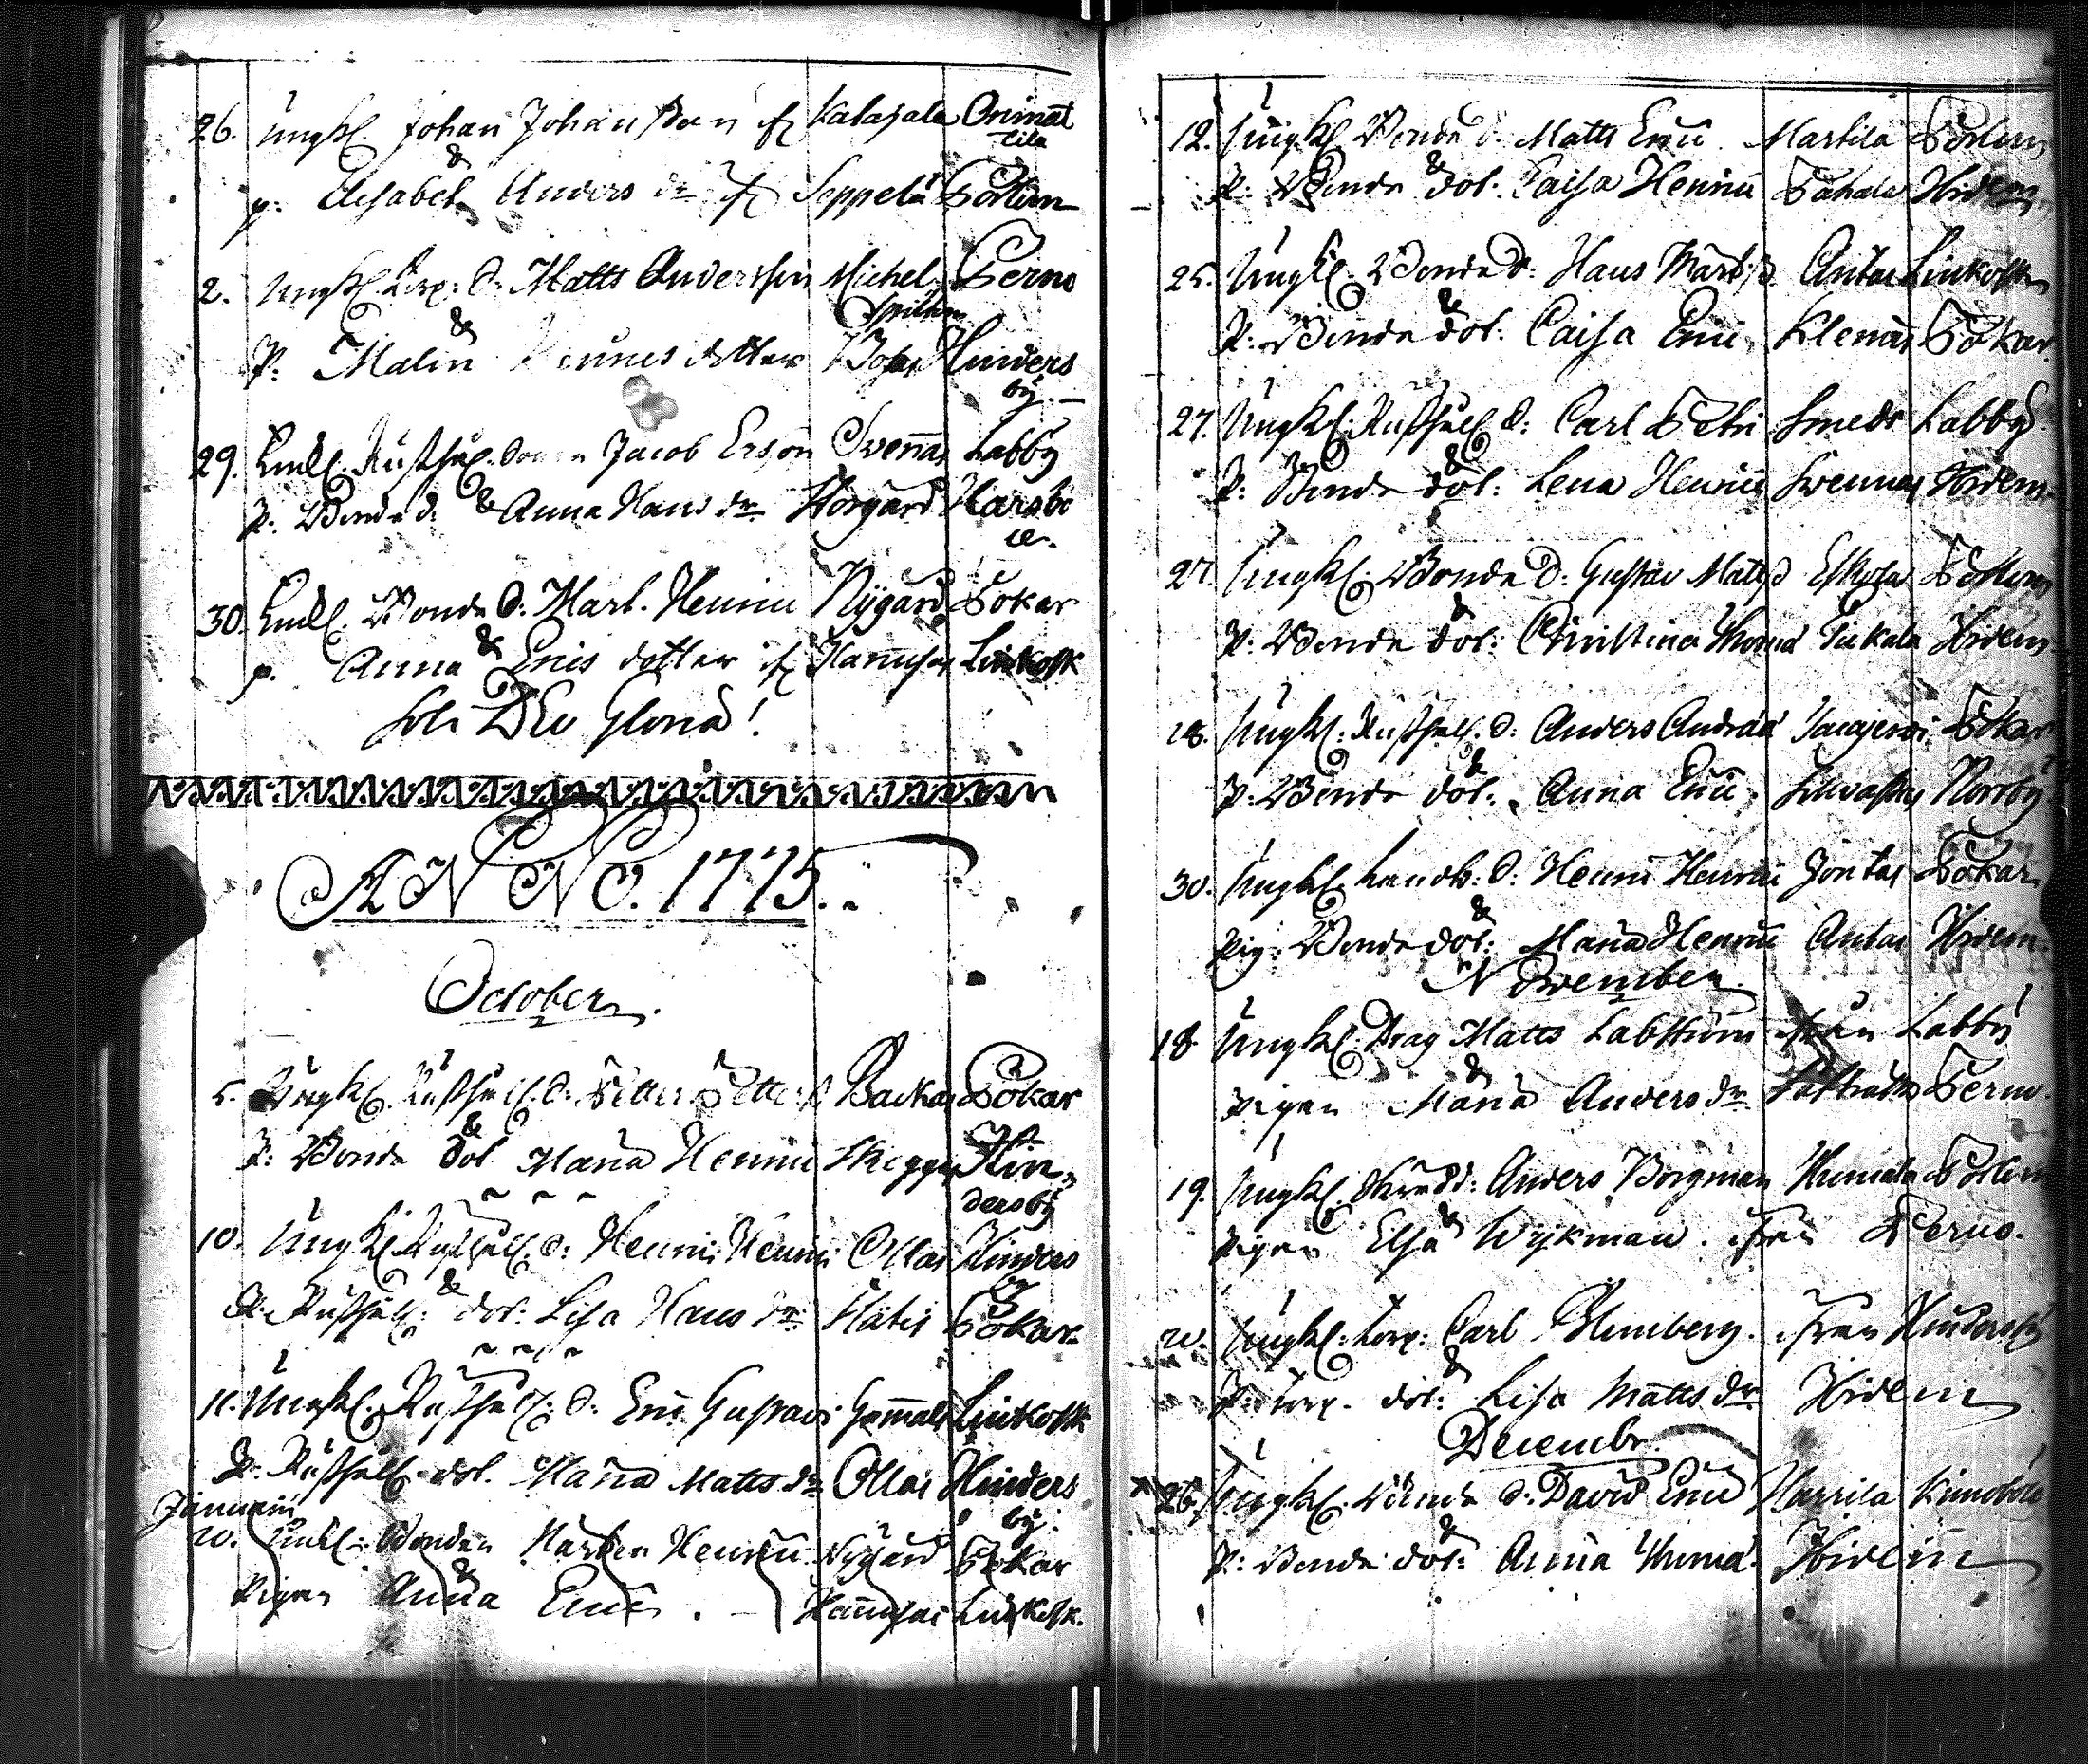 26. Ungkl. Johan Johansson if Kalajala Orimat
tila
&
p. Elisabet Anders dr if Seppelä Pörtom
2. Ungkl. Torp: d. Matts Andersson Michels Perno
Spithen
&
P. Malin dotter Hinders
by.
29. Enkl. Rusthål. Jacob Ersson Svenas Labby
P. Bonde d. & Anna Hans dr. Storgård Harsbö
le.
30. Enkl. Bonde d. Mart. Henrici Nygård Pokar
&
p. Anna Erics dotter if Hannusas Linkosk
Soli DEo Gloria!
ANNO. 1775.
October.
5. Ungkl. Rusthåll. d. Petter Petters Backas Pokar
&
P. Bonde dot. Maria Henrici Skeppar Hin
dersby
10. Ungkl. Rusthåll. d: Henric Henrici Ollas Hinders
by
&
P. Rusthåll: dot: Lisa Hans dr. Hätis Pokar
11. Ungkl. Rusthåll. d. Eric Gustavi Gammals Linkosk
P. Rusthåll. dot. Maria Matts dr Ollas Hinders
by.
Januarii
20. Enkl. Bonden Mårten Henrici Nygård Pokar
&
Pigan Anna Erici. Hannusas Linkosk.
12. Ungkl. Bonde d. Matts Erici Martila Pörtom
&
P. Bonde dot. Caisa Henrici Pahala Hidem
25. Ungkl. Bonde d: Hans Mårts Antas Linkosk
&
P. Bonde dot: Caisa Erici Klemas Pokar.
27. Ungkl. Rusthåll d: Carl Petri Smeds Labby
&
P. Bonde dot: Lena Henrici Svennas Hidem.
27. Ungkl. Bonde d: Gustav Matts Eskola Pörtom
&
P. Bonde dot: Christina Thomæ Tiukala Hidem
28. Ungkl: Rusthåll. d: Anders Andreæ Pokar
&
P. Bonde dot: Anna Erici Norrby
30. Ungkl. Landb: d: Henric Henrici Jontas Pokar
&
Pig. Bonde dot: Maria Henrici Antas Hidem.
November.
18. Ungkl. Drag Matts från Labby
&
Pigan Maria Anders dr Perno.
19. Ungkl. Skredd: Anders Borgman Humala Pörtom
&
Pigan Elsa Wijkman. från Perno.
20. Ungkl. Torp: Carl Blumberg. från Hindersby
&
P. Torp. dot: Lisa Matts dr Hidem
Decembr.
26. Ungkl. Bonde d: David Erici Harrila Kimoböle
&
P: Bonde dot: Anna Thomæ Hidem